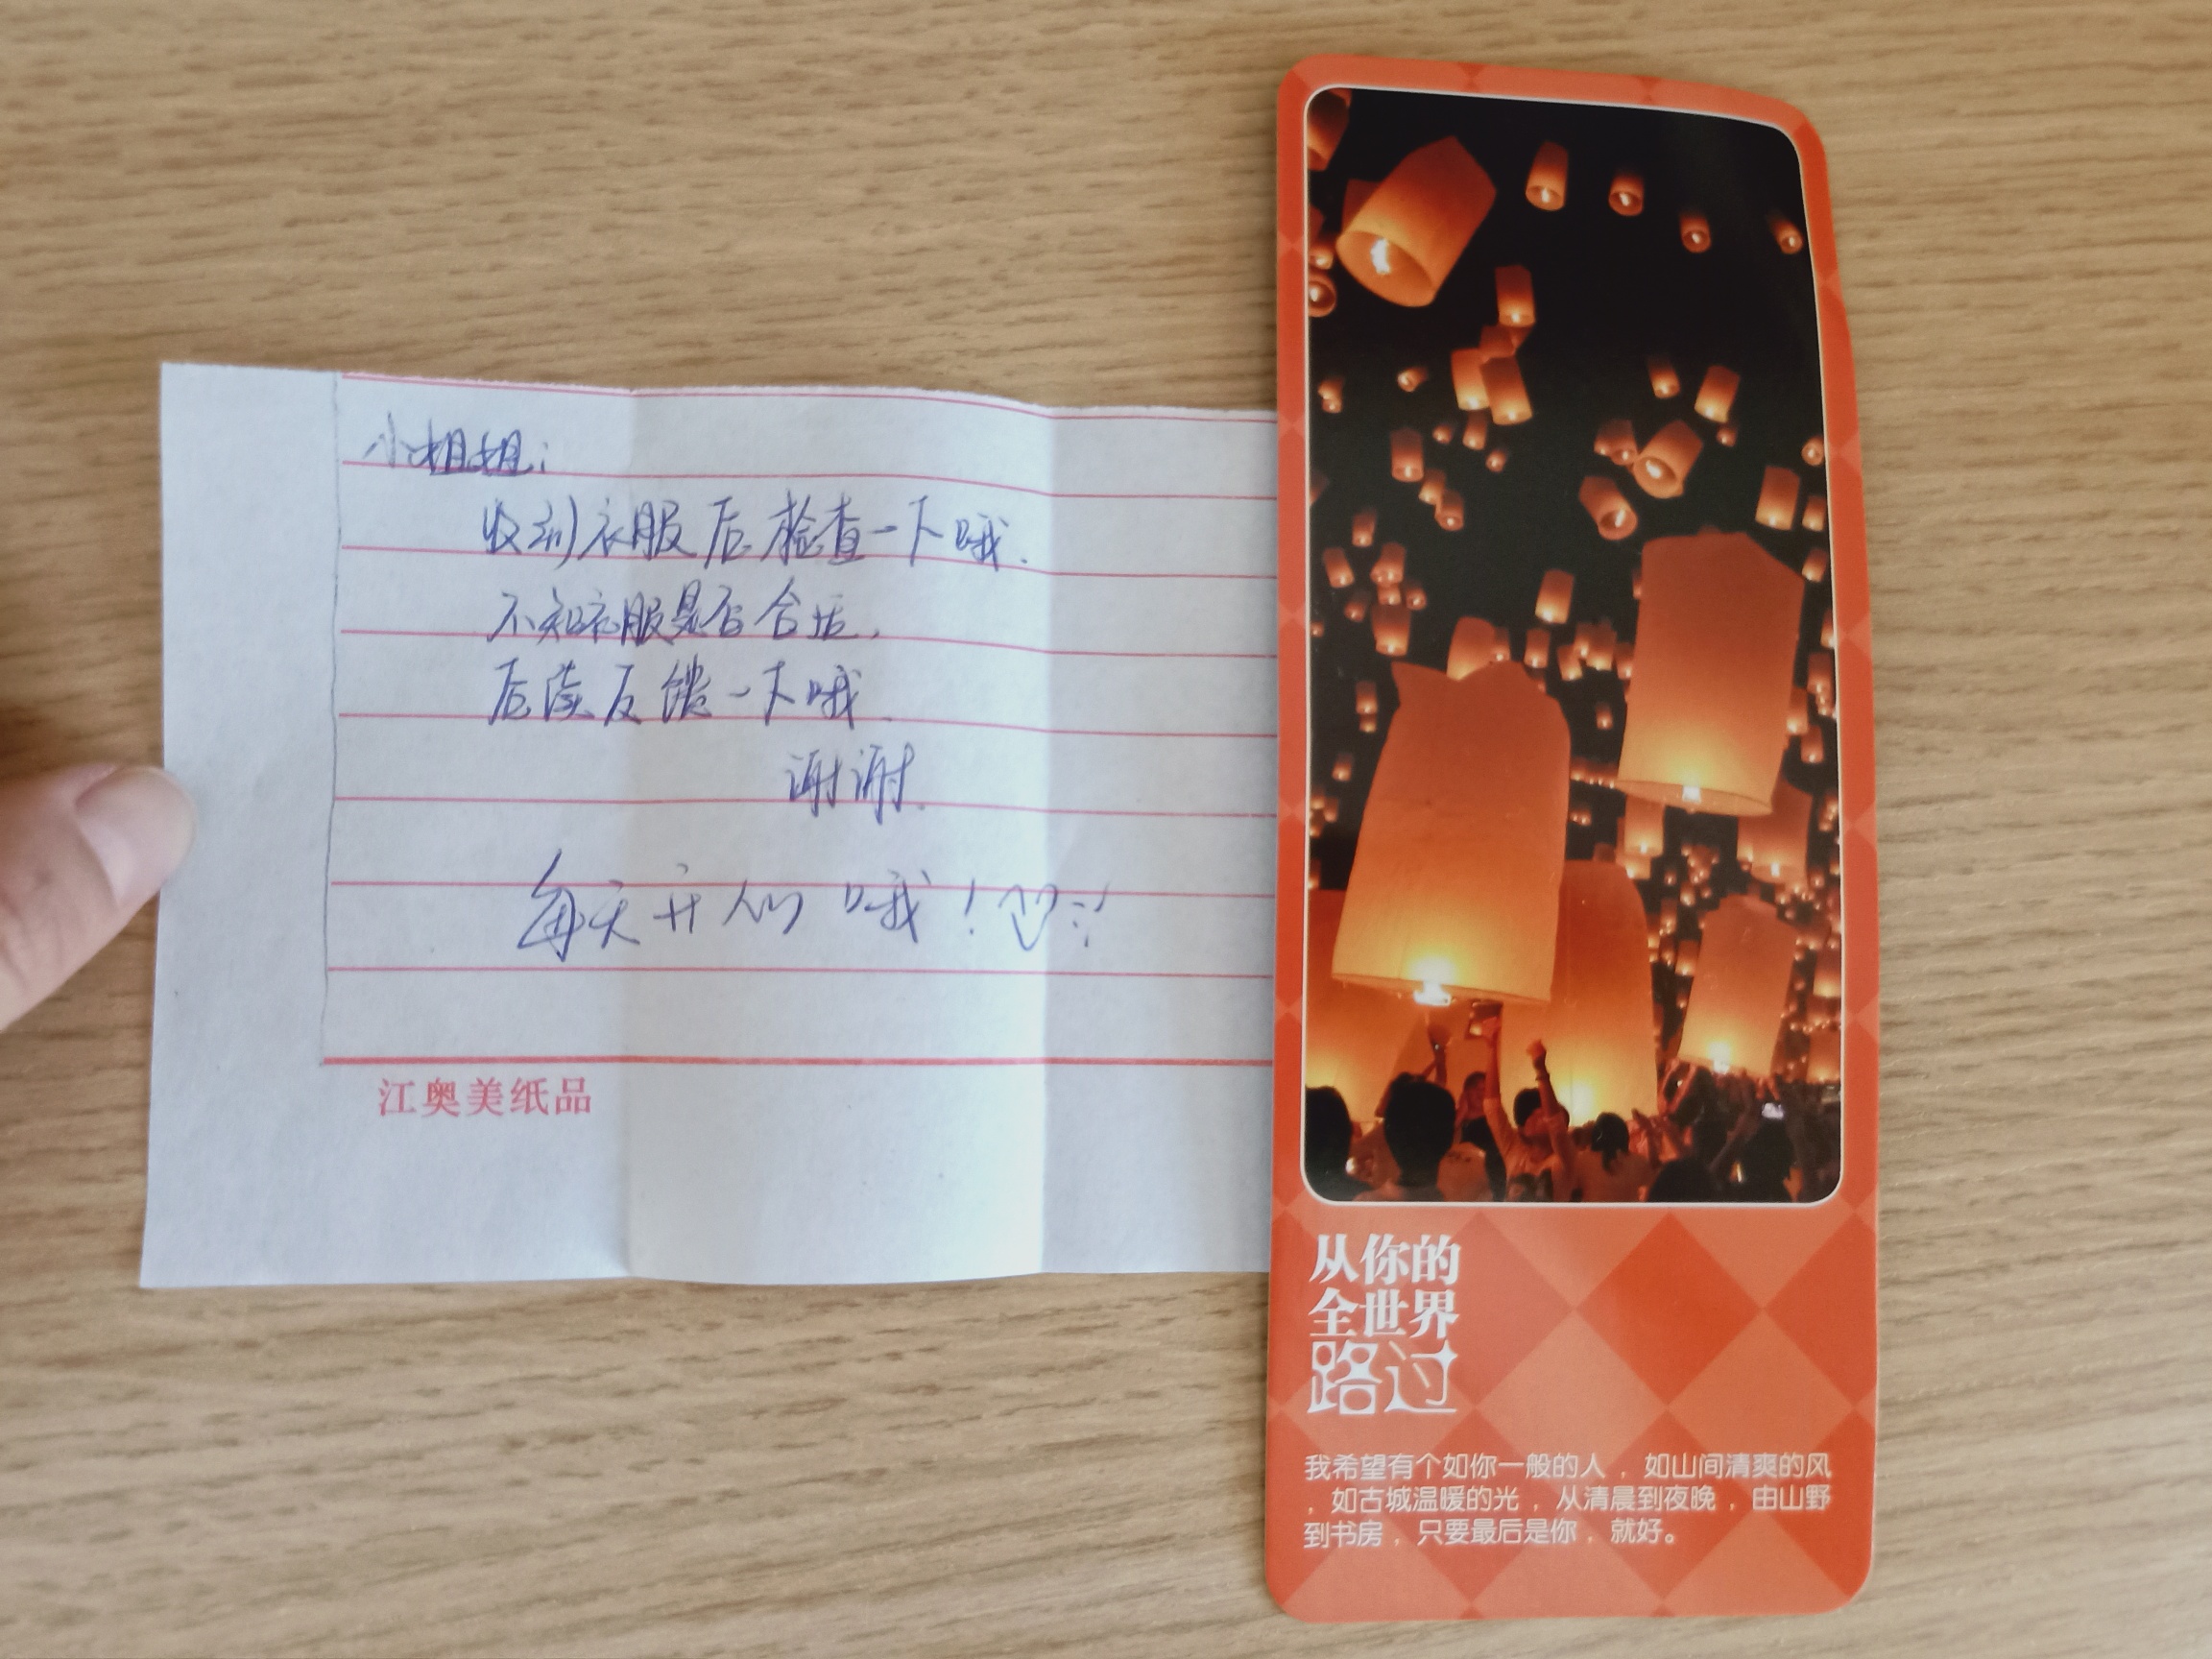 小姐姐：
收到衣服后检查一下哦.
不知衣服是否合适,
后续反馈一下哦.
谢谢.
每天开心哦！
江奥美纸品
从你的
全世界
路过
我希望有个如你一般的人，如山间清爽的风
，如古城温暖的光，从清晨到夜晚，由山野
到书房，只要最后是你，就好。